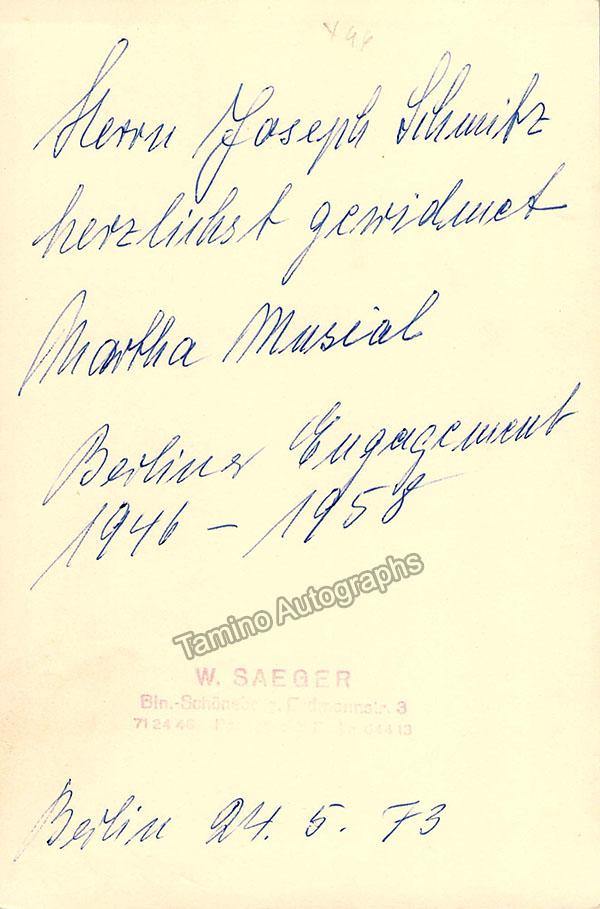 Herrn Joseph Schmitz
herzlichst gewidmet
Martha Musial
Berliner Engagement
1946 – 1958
Tamino Autographs
W. SAEGER
Bln.-Schöneberg, Erdmannstr. 3
71 24 46
Berlin 24. 5. 73